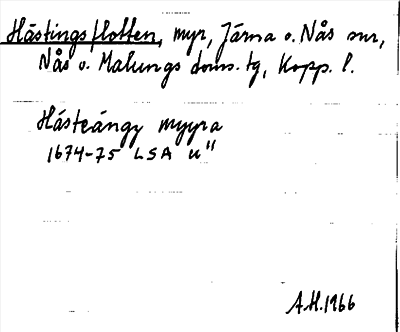 Hästingsflotten, myr, Järna o. Nås snr,
Nås o. Malungs doms. tg, Kopp. l.
Hásteángy myyra
1674-75 LSA u"
A.H. 1966